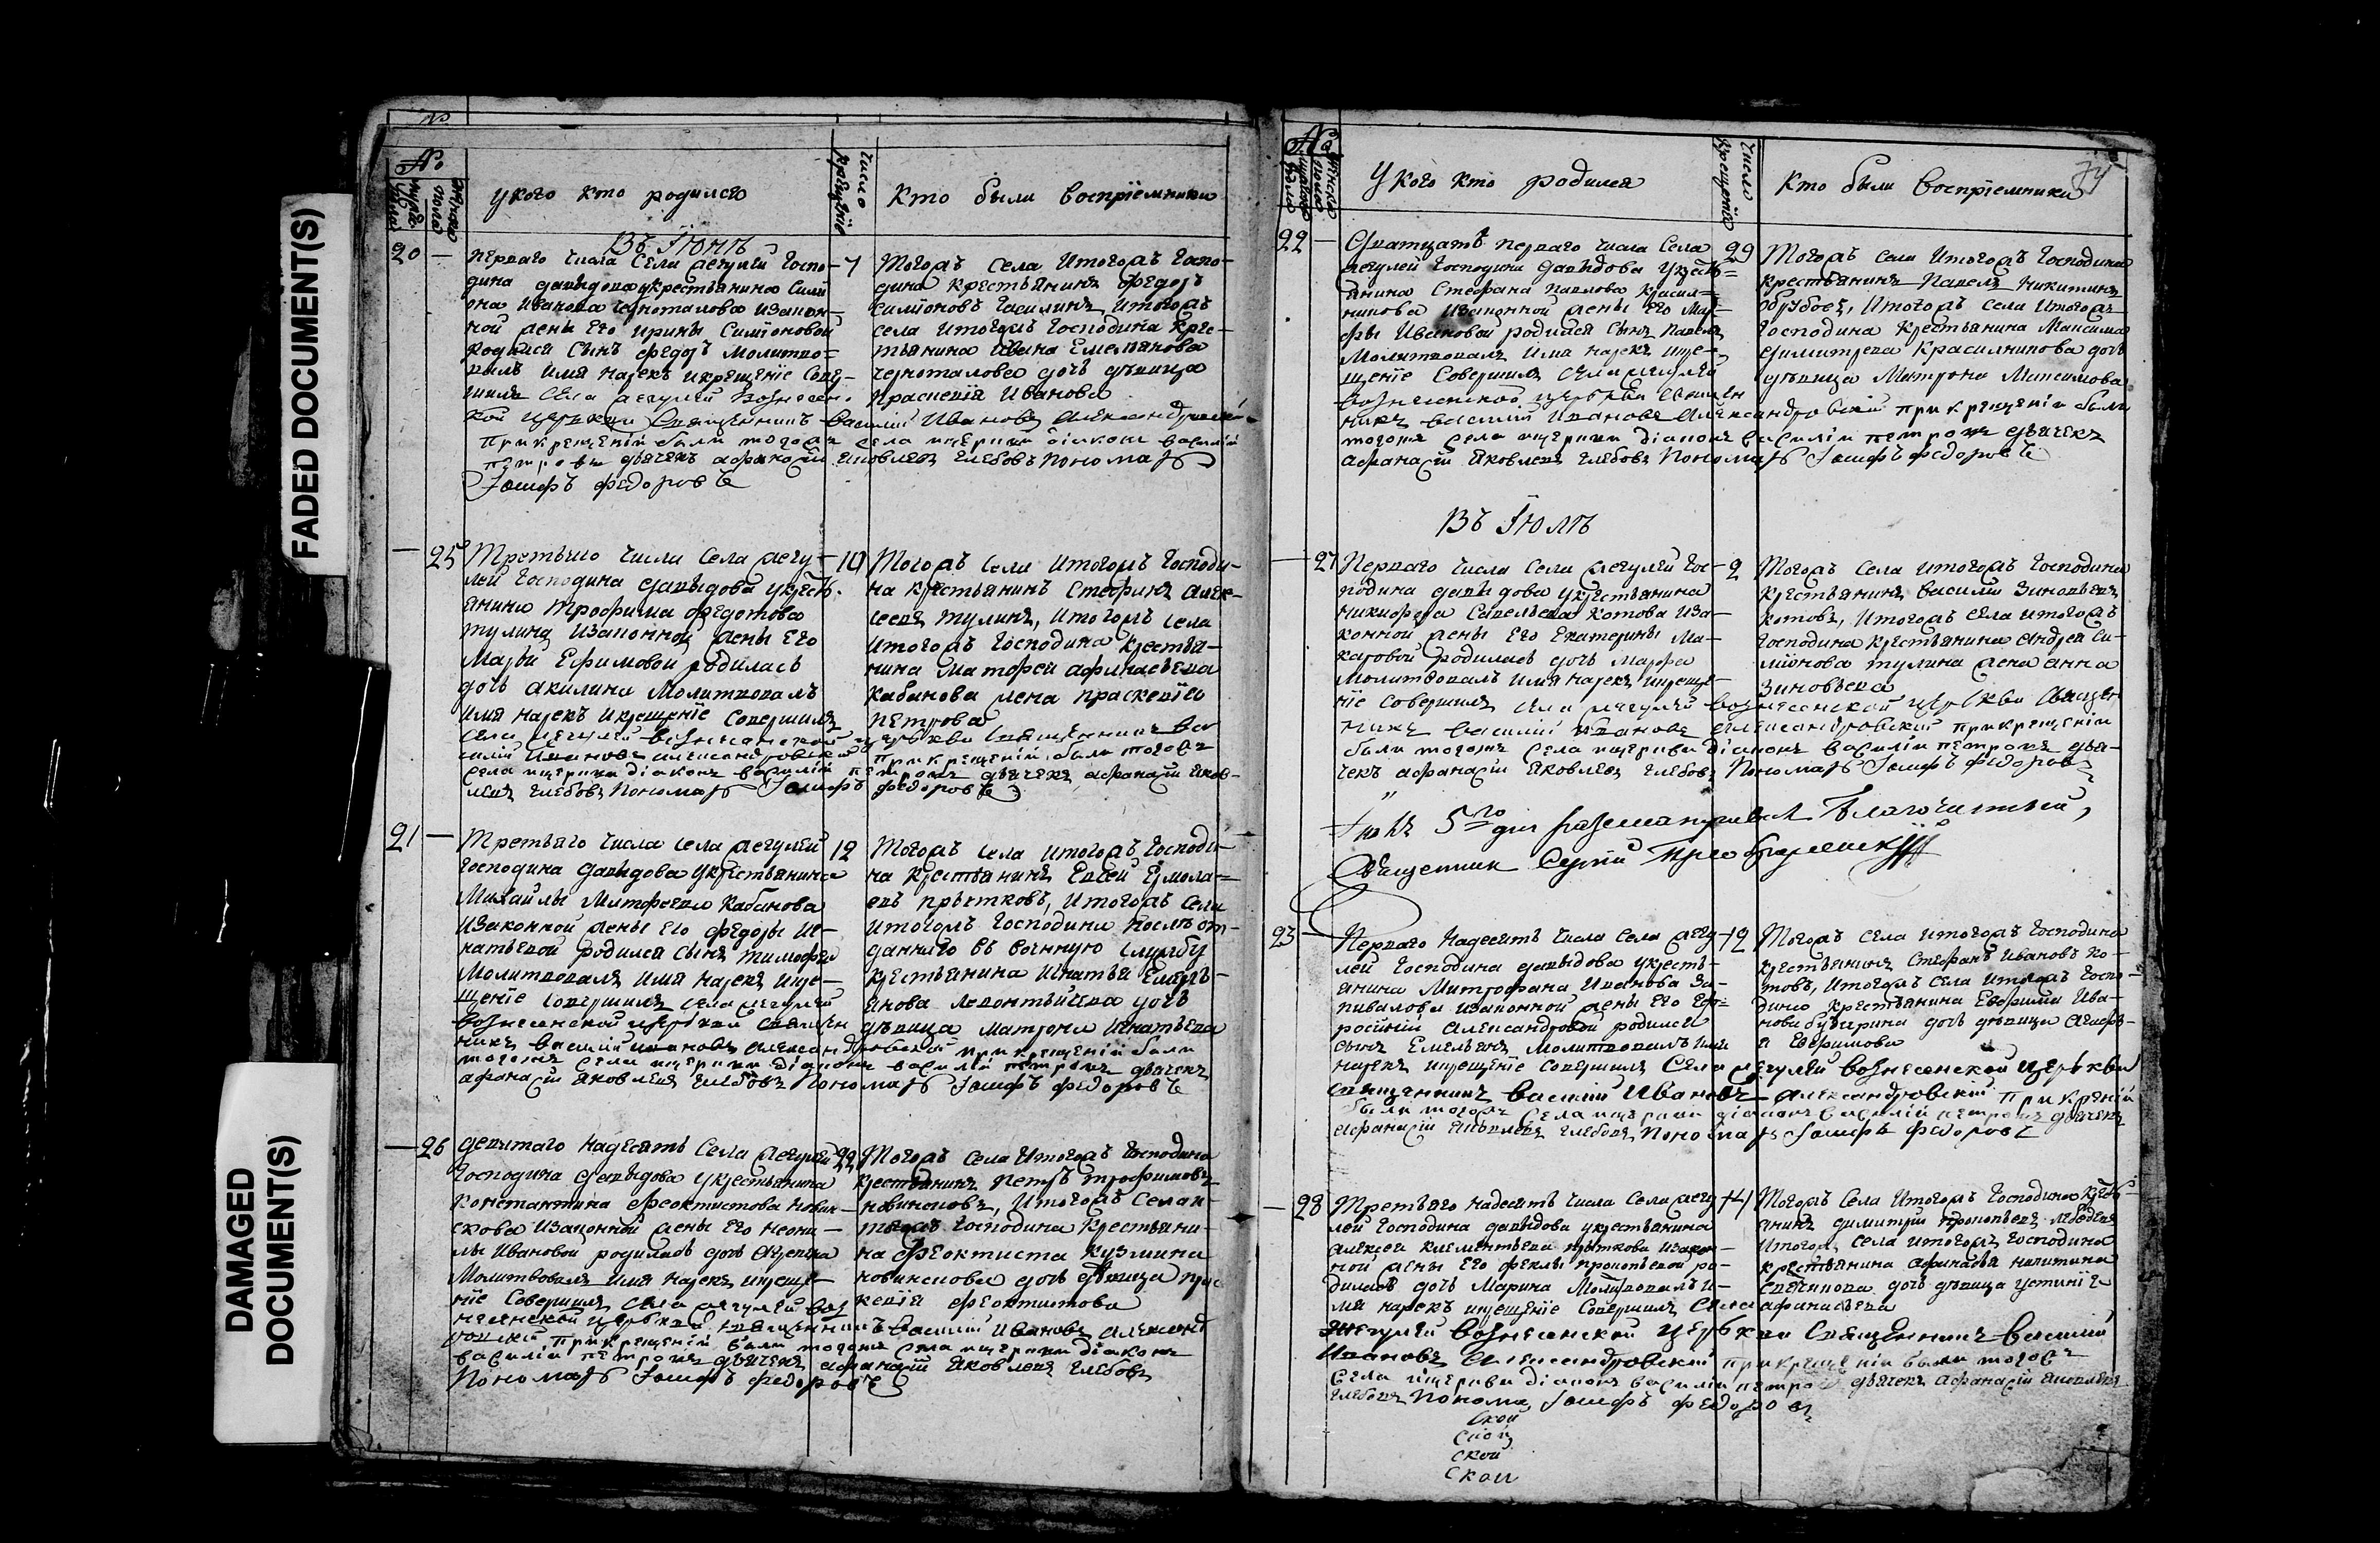 FADED DOCUMENT(S)
DAMAGED
DOCUMENT(S)
№
№
мужеска
пола
женска
пола
у кого кто родился
число
крещенїе
кто были воспрїемники
Въ Іюнѣ
20 —
перваго числа села Жегулей Госпо-
дина давыдова укрестьянина Сими
она Иванова Черноталова Изакон-
ной жены Его ирины Симїоновой
родился Сынъ федоръ Молитво=
валъ имя нарекъ икрещенїе Сове-
шилъ Села Жегулей Вознесен.
кой церькви Священникъ Василий Ивановъ Александровскїй
при крещенїй были тогожъ села ищеркви дїаконъ василїй
петровъ дьячекъ афанасїй яковлевъ глебовъ Пономарь
Іосифъ федоровъ
7
Тогожъ села Итогожъ Госпо-
дина крестьянинъ федоръ
симїоновъ Гасилинъ, Итогожъ
села Итогожъ Господина Крес-
тьянина Ивана Емельянова
черноталова дочь дѣвица
Праскевїя Иванова
— 25
Третьяго числа села Жегу-
лей Господина давыдова укресть.
янина Трофима федотова
тулина Изаконной жены Его
Марьи Ефимовой родилась
дочь акилина Молитвовалъ
имя нарекъ икрещенїе Совершилъ
села Жегулей Вознесенской церькви Священникъ Ва
силий Ивановъ александровский при крещенїй были тогожъ
села ищеркви дїаконъ василїй петровъ дьячекъ афанасїй яков-
левъ глебовъ Пономарь Іосифъ федоровъ
10
Тогожъ села Итогожъ Господи-
на крестьянинъ Стефанъ алек-
сеевъ тулинъ, Итогожъ села
Итогожъ Господина крестья-
нина Матфея афанасьева
Кабанова жена праскевїя
Петрова
21 —
Третьяго числа села Жегулей
Господина давыдова укрестьянина
Михайлы Матфеева Кабанова
Изаконной жены Его федоры Иг-
натьевой родился сынъ тимофей
Молитвовалъ имя нарекъ икре-
щенїе Совершилъ села Жегулей
Вознесенской церькви Священ
никъ Василий Ивановъ Александровский при крещенїй были
тогожъ села ищеркви дїаконъ василїй петровъ дьячекъ
афанасїй яковлевъ глебовъ Пономарь Іосифъ федоровъ
12
Тогожъ села Итогожъ Господи-
на крестьянинъ Евсей Ермола-
евъ прытковъ, Итогожъ села
Итогожъ Господина послѣ от-
даннаго въ военную службу
крестьянина Игнатья Емель-
янова Леонтьичева дочь
дѣвица Матрона Игнатьева
— 26
девятаго надесять Села Жегулей
Господина давыдова укрестьянина
Константина феоктистова Новин-
скова Изаконной жены Его Неони-
лы Ивановой родилась дочь Агрепина
Молитвовалъ имя нарекъ икреще-
нїе Совершилъ Села Жегулей Воз
несенской церькви священникъ Василий Ивановъ Александ
ровский при крещенїй были тогожъ села ищеркви дїаконъ
василїй петровъ дьячекъ афанасїй яковлевъ глебовъ
Пономарь Іосифъ федоровъ
22
Тогожъ села Итогожъ Господина
крестьянинъ Петръ трофимовъ
новинсковъ, Итогожъ Села и-
тогожъ Господина Крестьяни-
на феоктиста Кузмина
новинскова дочь дѣвица прас
кевїя феоктистова
№
У кого кто родился
Число
крещенїя
Кто были Воспрїемники
22 —
Дватцать перваго числа Села
Жегулей Господина давыдова Укресть=
янина Стефана Павлова Красил=
никова Изаконной жены Его Мар-
фы Ивановой родился Сынъ Павелъ
Молитвовалъ имя нарекъ икре-
щенїе Совершилъ Села Жегулей
Вознесенской церькви Священ
никъ Василий Ивановъ Александровский при крещенїи были
тогожъ села ищеркви дїаконъ василїй петровъ дьячекъ
афанасїй яковлевъ глебовъ Пономарь Іосифъ федоровъ
29
Тогожъ села Итогожъ Господина
крестьянинъ Павелъ Никитинъ
Обрубовъ, Итогожъ села Итогожъ
Господина крестьянина Максима
димитрева Красилникова дочь
дѣвица Матрона Максимова
Въ Іюлѣ
— 27
Перваго числа села Жегулей Гос-
подина давыдова укрестьянина
никифора Савельева Котова Иза-
конной жены Его Екатерины Ма-
каровой родилась дочь Марфа
Молитвовалъ имя нарекъ икреще-
нїе Совершилъ села Жегулей Вознесенской церькви Священ
никъ Василий Ивановъ александровский при крещенїи
были тогожъ села ищеркви дїаконъ василїй петровъ дья-
чекъ афанасїй яковлевъ глебовъ Пономарь Іосифъ федоровъ
2
Тогожъ села итогожъ Господина
крестьянинъ Василий Зиновьевъ
котовъ, Итогожъ села итогожъ
Господина крестьянина Андрея Си-
мїонова тулина жена Анна
Зиновьева
Іюля 5го дня разсматривал Благочинный,
Священник Сергий Преображенский
23 —
Перваго надесять числа села Жегу-
лей Господина давыдова укресть-
янина Митрофана Иванова За-
пивалова Изаконной жены Его Ефо-
росинїи Александровой родился
сынъ Емельянъ Молитвовалъ имя
нарекъ икрещенїе Совершилъ Села Жегулей Вознесенской церькви
священникъ Василий Ивановъ Александровский при крещенїй
были тогожъ села ищеркви дїаконъ василїй петровъ дьячекъ
афанасїй яковлевъ глебовъ Пономарь Іосифъ федоровъ
12
Тогожъ села итогожъ Господина
крестьянинъ Стефанъ Ивановъ Ко-
товъ, Итогожъ села итогожъ Госпо-
дина крестьянина Евфима Ива-
нова бузырина дочь дѣвица Агаф-
я Евфимова
— 28
Третьяго надесять числа села Жегу
лей Господина давыдова укрестьянина
Алексея клементьева прыткова Изакон-
ной жены Его феклы прокопьевой ро-
дилась дочь Марина Молитвовалъ и-
мя нарекъ икрещенїе Совершилъ Села
Жегулей Вознесенской церькви Священникъ Василий
Ивановъ Александровский при крещенїи были тогожъ
села ищеркви дїаконъ василїй петровъ дьячекъ афанасїй яковлевъ
глебовъ Пономарь Іосифъ федоровъ
14
Тогожъ села Итогожъ Господина кресть-
янинъ димитрий прокопьевъ лебедевъ
Итогожъ села итогожъ Господина
крестьянина афанасья никитина
Свечникова дочь дѣвица устинїя
афанасьева
ской
ской
ской
ской